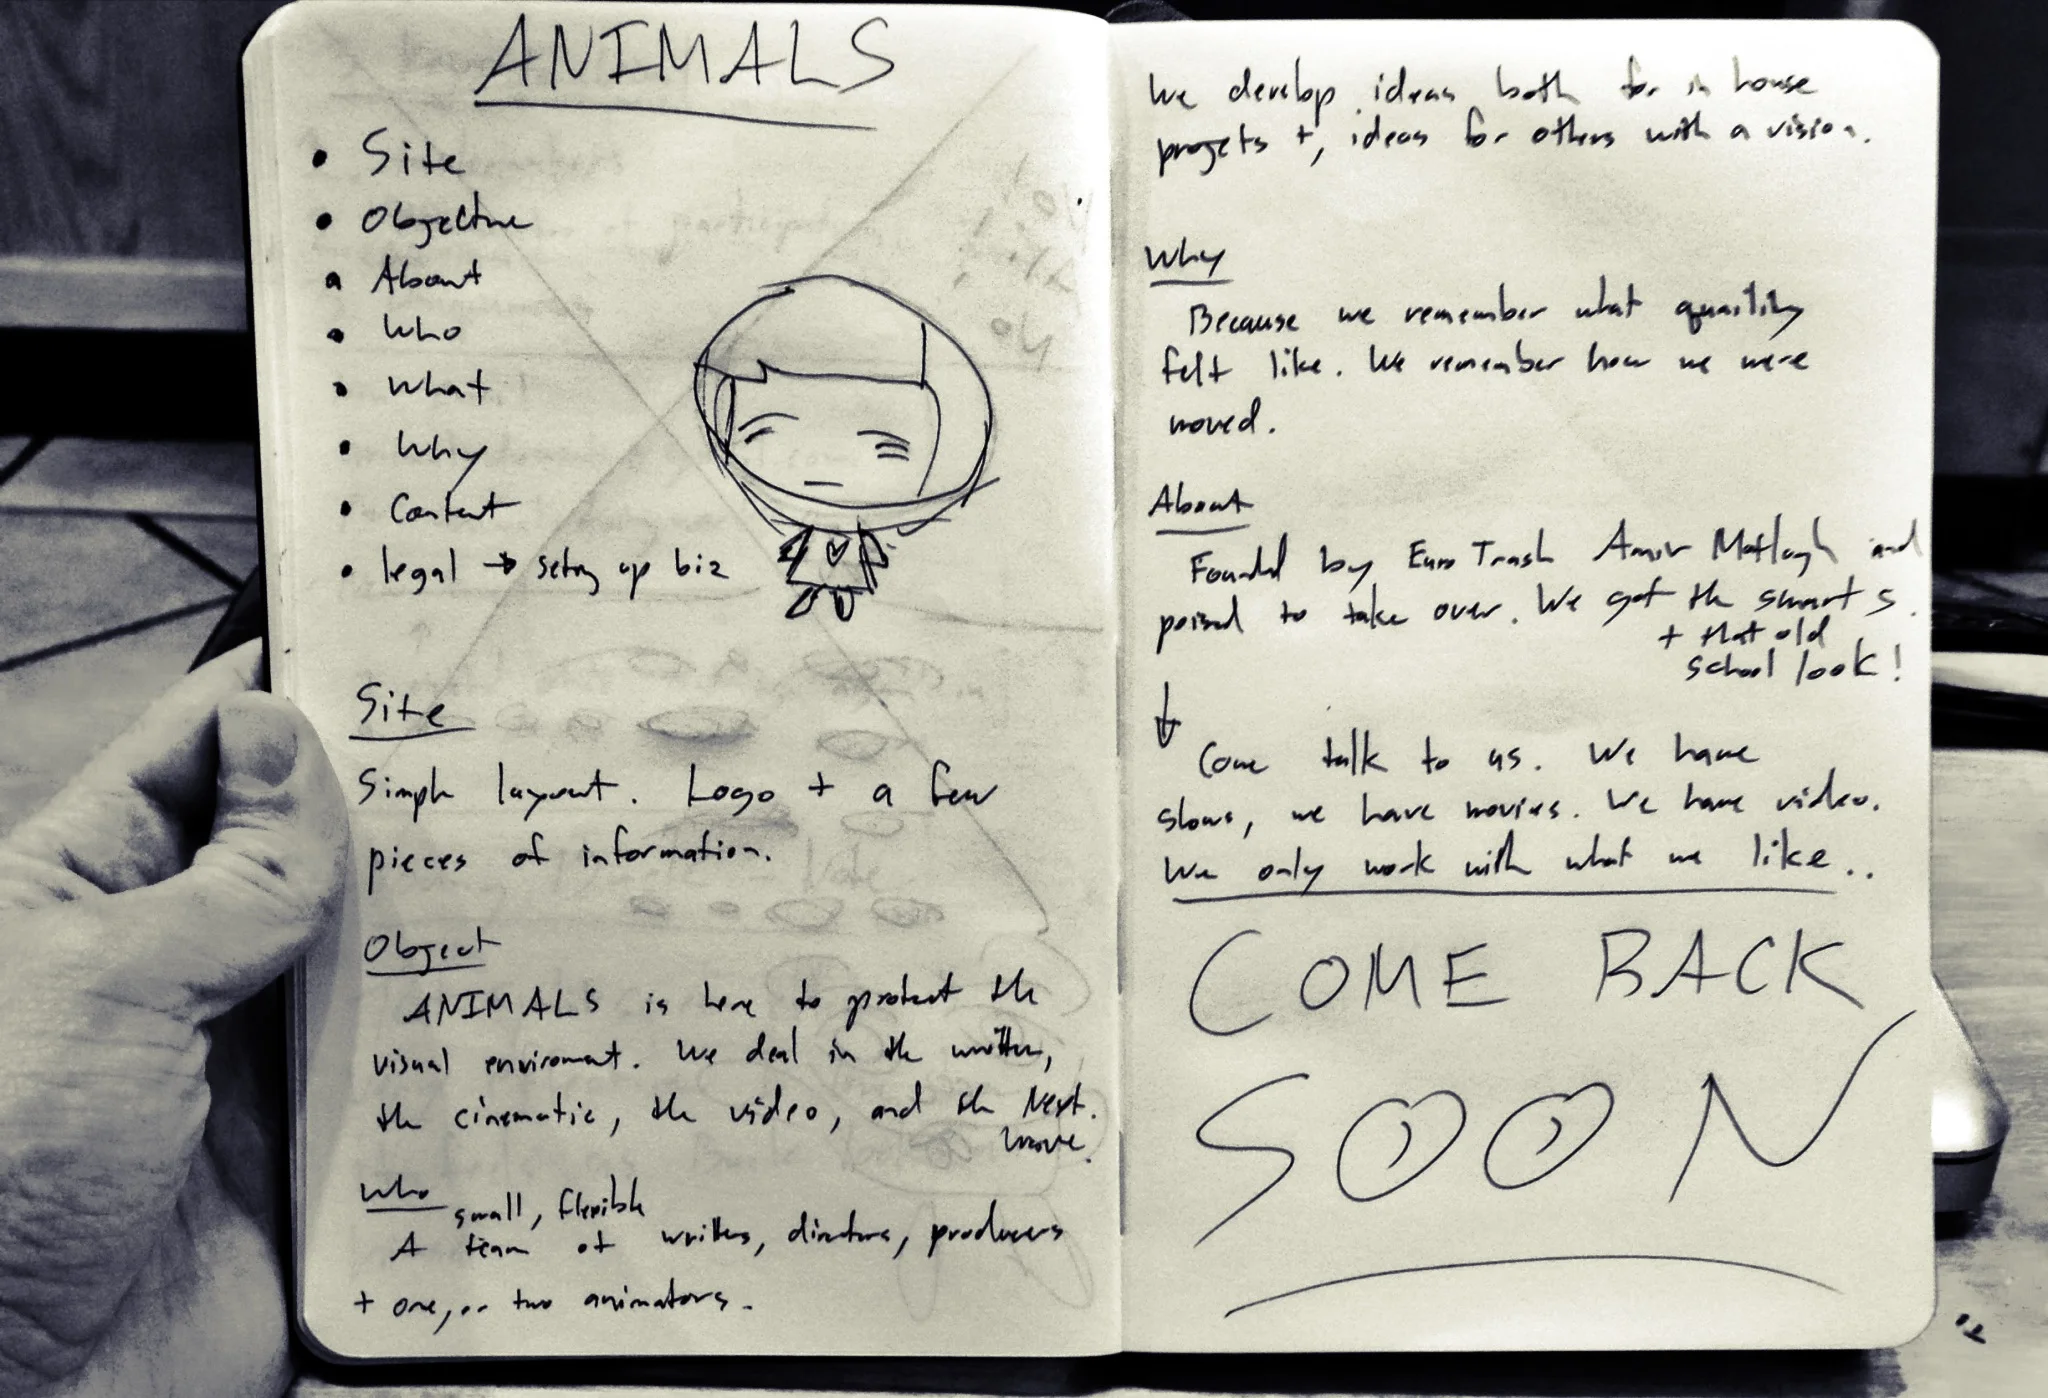 ANIMALS
• Site
• Objective
• About
• Who
• What
• Why
• Content
• legal → setting up biz
Site
Simple layout. Logo + a few
pieces of information.
Object
ANIMALS is here to protect the
visual enviroment. We deal in the written,
the cinematic, the video, and the Next.
move.
Who
small, flexible
A team of writers, directors, producers
+ one, or two animators.
We develop ideas both for in house
projets +, ideas for others with a vision.
Why
Because we remember what quaility
felt like. We remember how we were
moved.
About
Founded by Euro Trash Amir Motlagh and
poised to take over. We got the smarts.
+ that old
school look!
↓
Come talk to us. We have
shows, we have movies. We have video.
We only work with what we like..
COME BACK
SOON